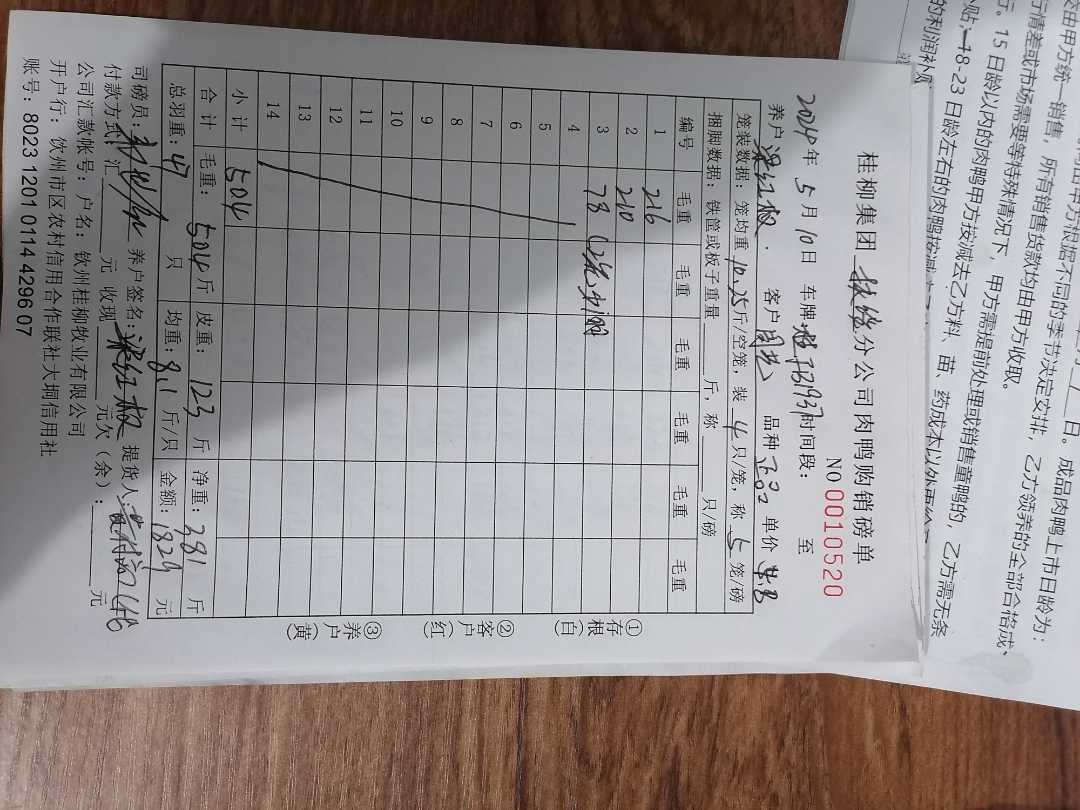 交由甲方统一销售，所有销售货款均由甲方收取。
15日龄以内的肉鸭甲方按减去乙方料、苗、药成本以外
18-23日龄左右的肉鸭按减
的利润补贴
日。成品肉鸭上市日龄为：
甲方根据不同的季节决定安排，乙方领养的全部合格成、
行情差或市场需要等特殊情况下，甲方需提前处理或销售童鸭的，乙方需无条
桂柳集团 分公司肉鸭购销磅单
NO 0010520
2024年 5月 10日 车牌: TB1937 时间段： 至
养户 梁红极 客户 周艺 品种 正品 单价
笼装数据：笼均重 10.25 斤/空笼，装 4 只/笼，称 5 笼/磅
捆脚数据：铁筐或板子重量 斤，称 只/磅
编号 毛重 毛重 毛重 毛重 毛重 毛重
1 216
2 210
3 78 (2笼
4
5
6
7
8
9
10
11
12
13
14
小计 504
合计 毛重： 504 斤 皮重： 123 斤 净重： 381 斤
总羽重： 47 只 均重： 8.1 斤/只 金额： 1829 元
司磅员： 养户签名： 梁红极 提货人：
付款方式：汇 元 收现 元欠（余）： 元
公司汇款帐号：户名：钦州桂柳牧业有限公司
开户行：钦州市区农村信用合作联社大垌信用社
账号：8023 1201 0114 4296 07
①存根（白）
②客户（红）
③养户（黄）